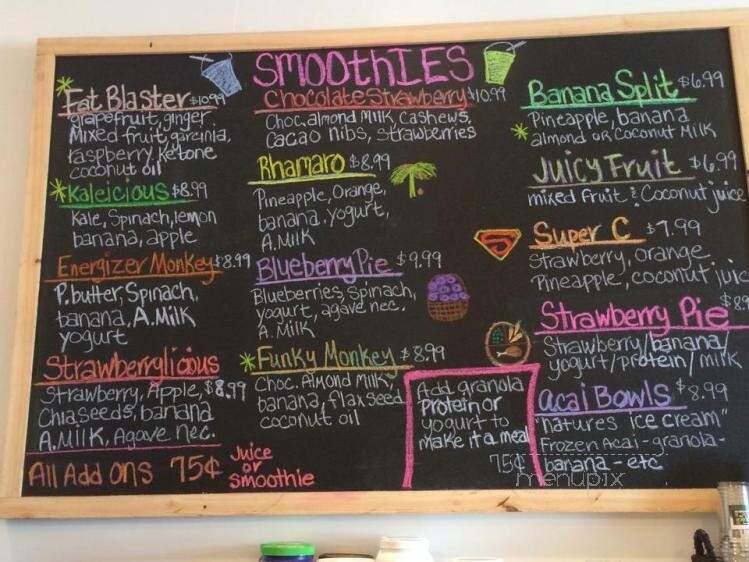 SMOOTHIES
Fat Blaster $10.99
grapefruit, ginger
Mixed fruit, garcinia,
raspberry ketone
coconut oil
Kaleicious $8.99
Kale, Spinach, lemon
banana, apple
Energizer Monkey $8.99
P.butter, Spinach,
banana, A.Milk
yogurt
Strawberrylicious
Strawberry, Apple, $8.99
Chia seeds, banana
A.Milk, Agave nec.
All Add ons 75¢
Juice
or
Smoothie
Chocolate Strawberry $10.99
Choc. almond Milk, cashews,
Cacao nibs, strawberries
Rhamaro $8.99
Pineapple, Orange,
banana, yogurt,
A.Milk
Blueberry Pie $9.99
Blueberries, spinach,
yogurt, agave nec.
A.Milk
Funky Monkey $8.99
Choc. Almond Milk,
banana, flaxseed
coconut oil
Add granola
Protein or
yogurt to
make it a meal
75¢
Banana Split $6.99
Pineapple, banana
almond or Coconut Milk
Juicy Fruit $6.99
mixed fruit & Coconut juice
Super C $7.99
Strawberry, orange
Pineapple, coconut juice
Strawberry Pie
Strawberry/banana/
yogurt/protein/milk
acai Bowls $8.99
"natures ice cream"
Frozen Acai-granola-
banana-etc
menupix